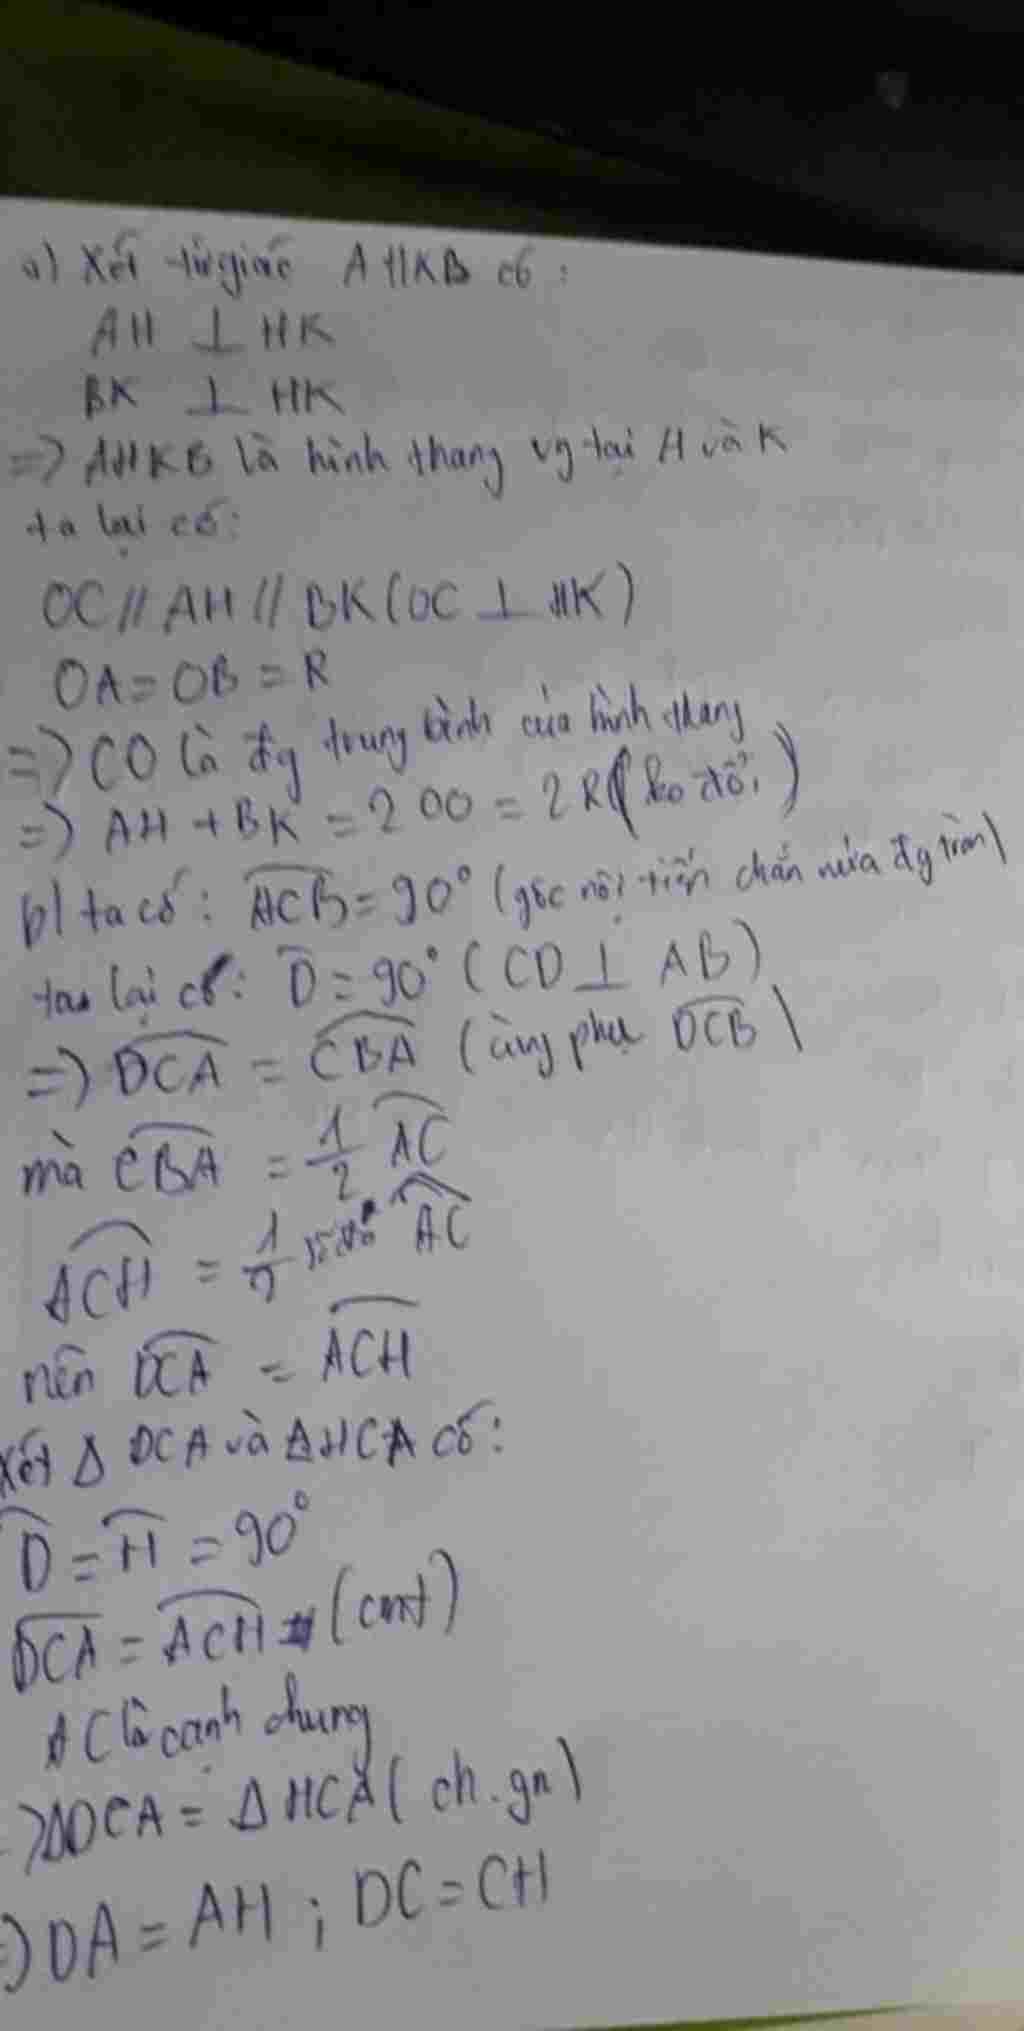 a) Xét tứ giác AHKB có:
AH ⊥ HK
BK ⊥ HK
=> AHKB là hình thang vg tại H và K
ta lại có:
OC // AH // BK (OC ⊥ HK)
OA = OB = R
=> CO là đg trung bình của hình thang
=> AH + BK = 2 OO = 2R ( ko đổi )
b) ta có: ACB = 90° (góc nội tiếp chắn nửa đg tròn)
ta lại có: D = 90° (CD ⊥ AB)
=> DCA = CBA (cùng phụ DCB)
mà CBA = 1/2 AC
ACH = 1/2 sđ AC
nên DCA = ACH
xét Δ DCA và Δ HCA có:
D = H = 90°
DCA = ACH (cmt)
AC là cạnh chung
=> ΔDCA = ΔHCA ( ch.gn)
=> DA = AH ; DC = CH